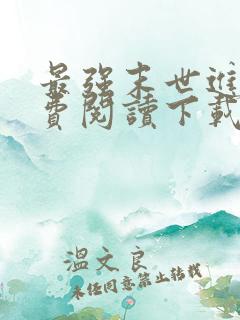 最强末世進
費閱讀下載
溫文良
未任同意禁止转载